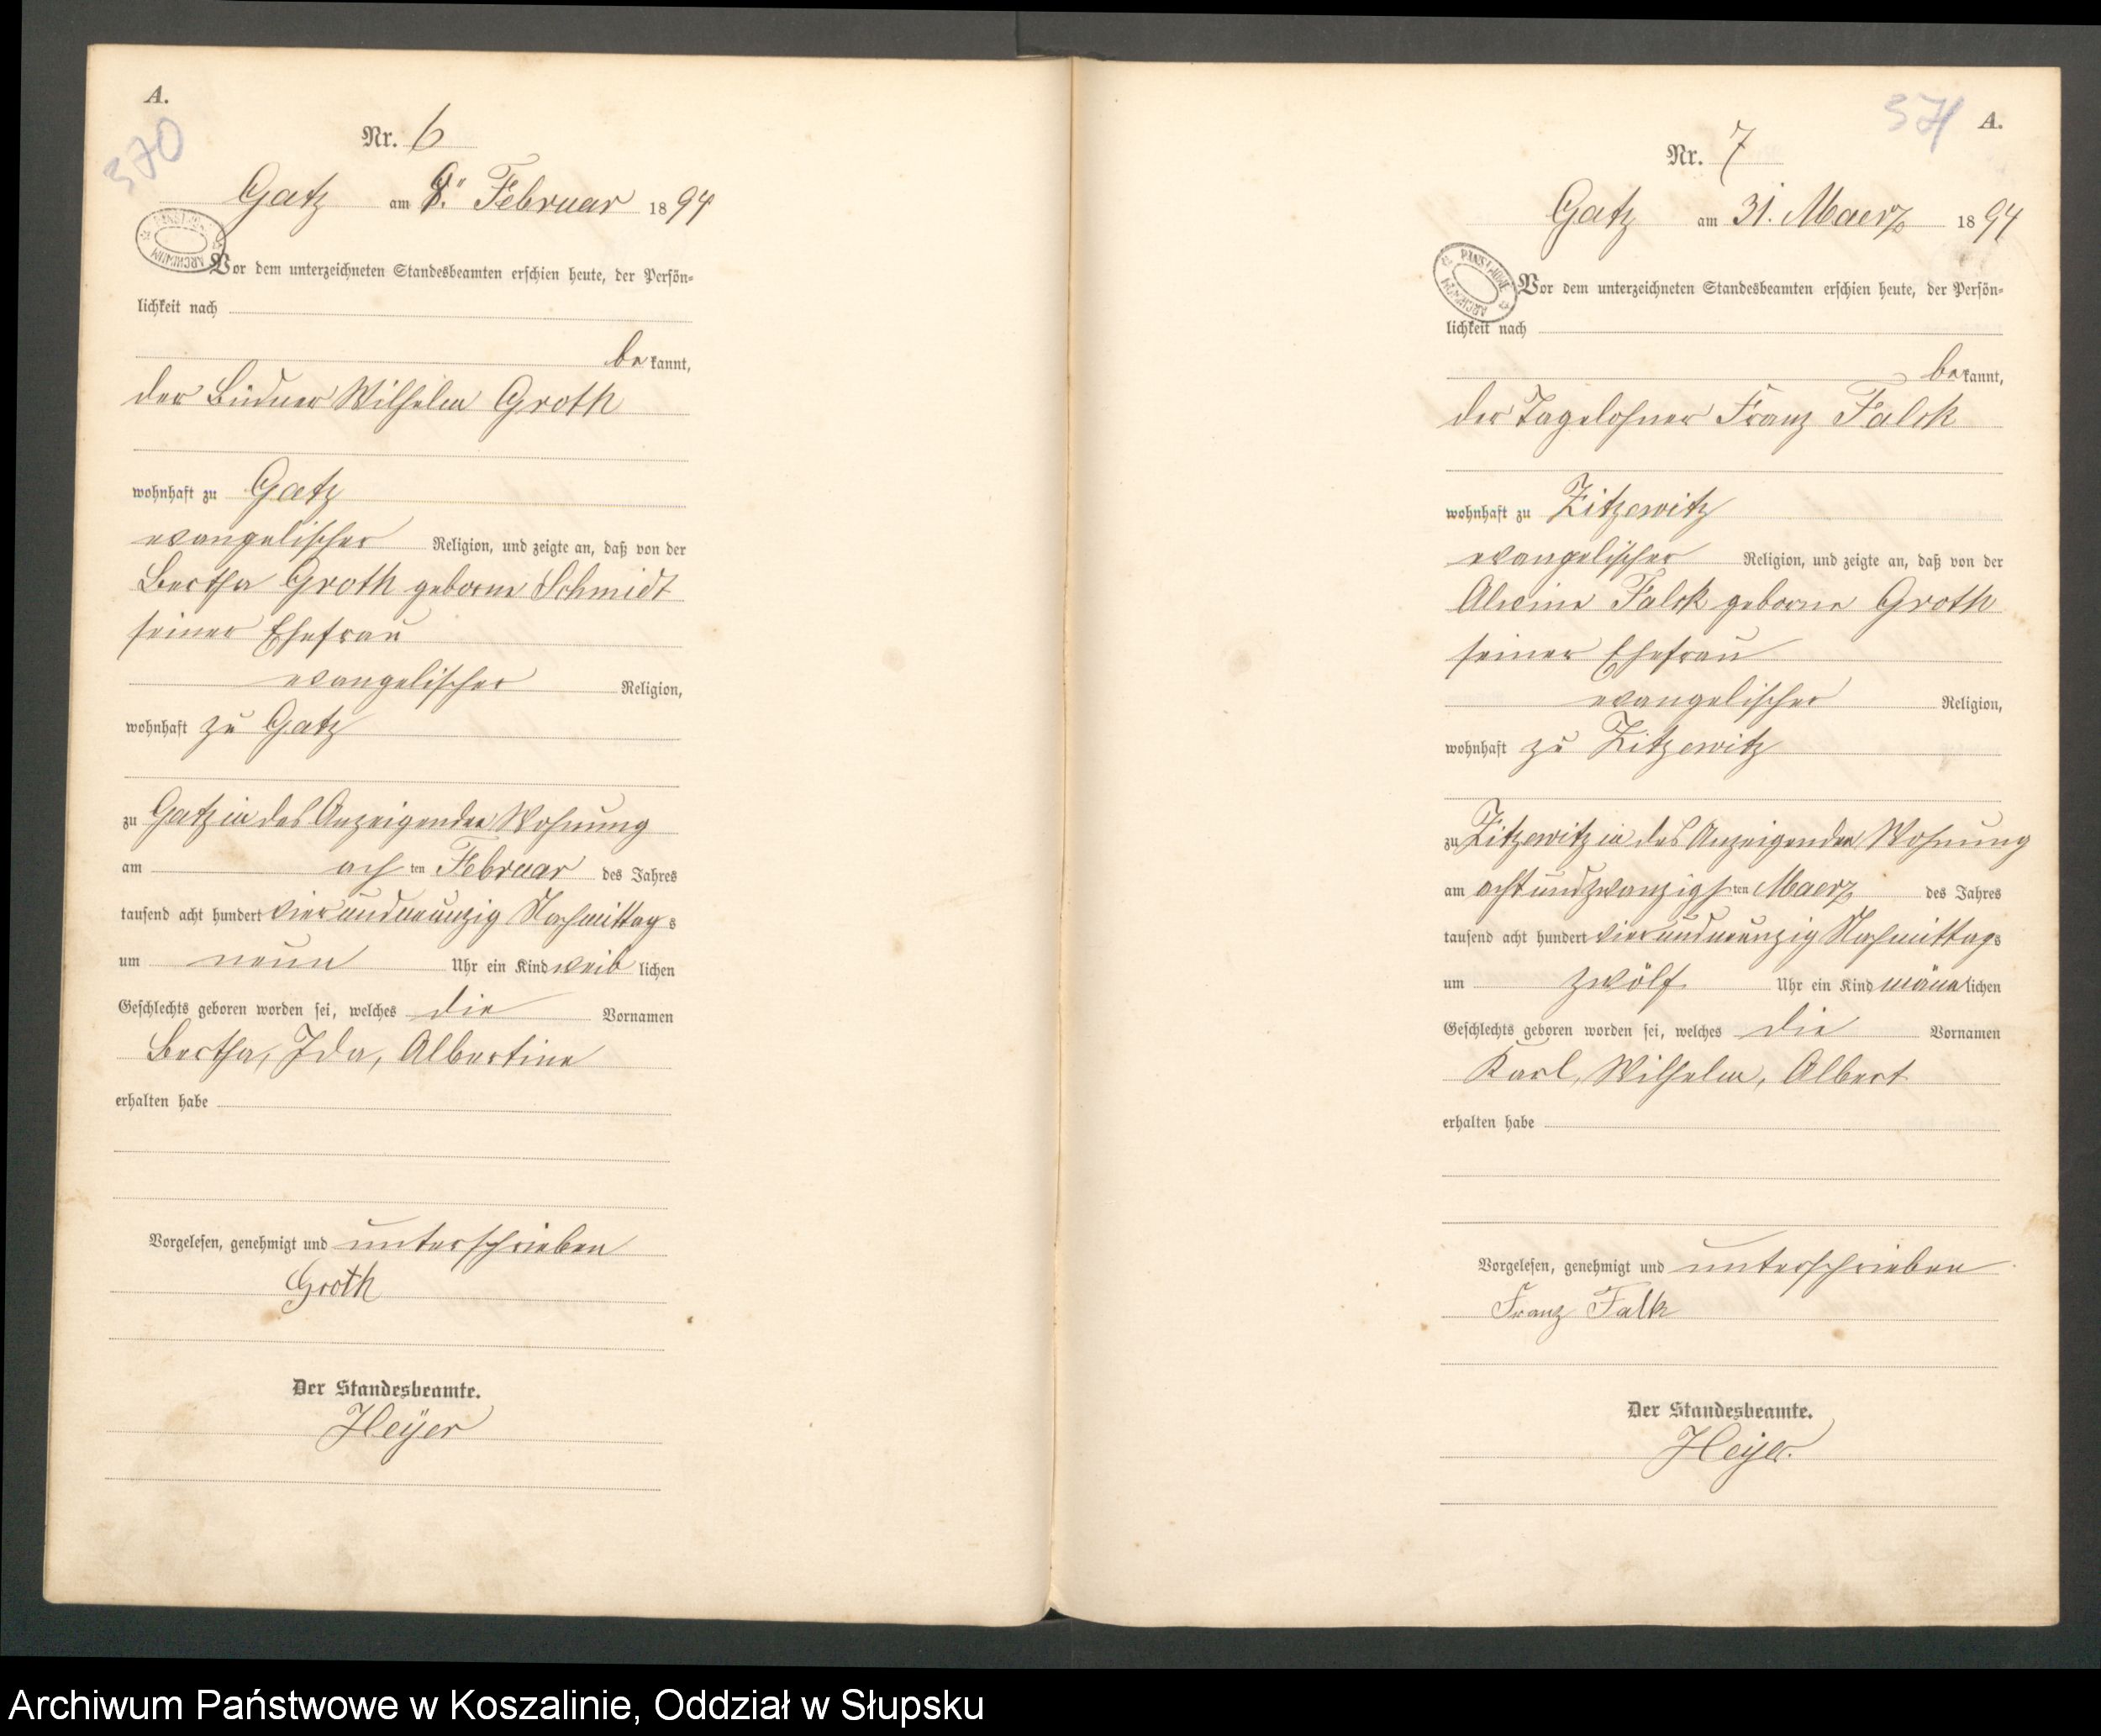 A.
370
Nr. 6
Gatz am 9. Februar 1894
Vor dem unterzeichneten Standesbeamten erschien heute, der Persön-
lichkeit nach
bekannt,
der Büdner Wilhelm Groth
wohnhaft zu Gatz
evangelischer Religion, und zeigte an, daß von der
Bertha Groth geborne Schmidt
seiner Ehefrau
evangelischer Religion,
wohnhaft zu Gatz
zu Gatz in des Anzeigenden Wohnung
am achten Februar des Jahres
tausend acht hundert vierundneunzig Nachmittags
um neun Uhr ein Kind weiblichen
Geschlechts geboren worden sei, welches die Vornamen
Bertha, Ida, Albertine
erhalten habe
Vorgelesen, genehmigt und unterschrieben
Groth
Der Standesbeamte.
Heÿer
371 A.
Nr. 7
Gatz am 31. Maerz 1894
Vor dem unterzeichneten Standesbeamten erschien heute, der Persön-
lichkeit nach
bekannt,
der Tagelohner Franz Falck
wohnhaft zu Zitzewitz
evangelischer Religion, und zeigte an, daß von der
Alwine Falck geborne Groth
seiner Ehefrau
evangelischer Religion,
wohnhaft zu Zitzewitz
zu Zitzewitz in des Anzeigenden Wohnung
am achtundzwanzigsten Maerz des Jahres
tausend acht hundert vierundneunzig Nachmittags
um zwölf Uhr ein Kind mänlichen
Geschlechts geboren worden sei, welches die Vornamen
Karl, Wilhelm, Albert
erhalten habe
Vorgelesen, genehmigt und unterschrieben
Franz Falk
Der Standesbeamte.
Heÿer.
Archiwum Państwowe w Koszalinie, Oddział w Słupsku